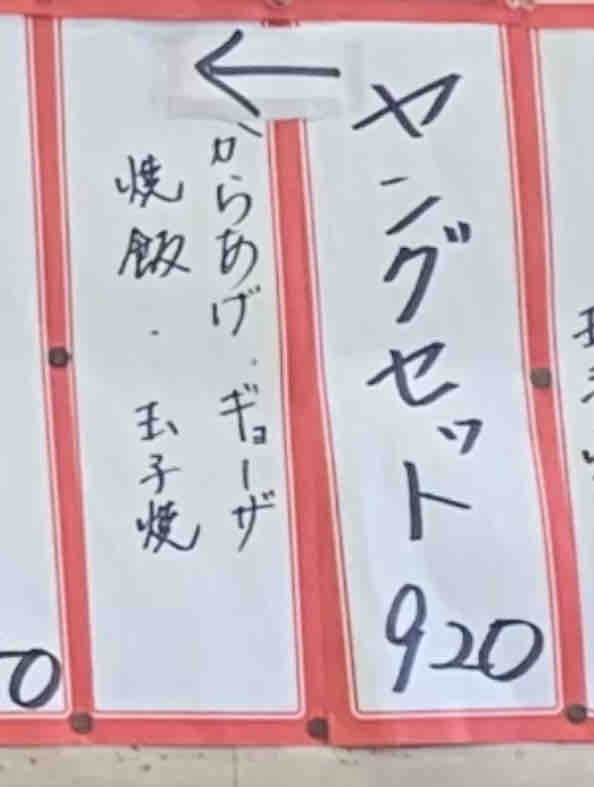 ヤングセット
920
←
からあげ・ギョーザ
焼飯・玉子焼